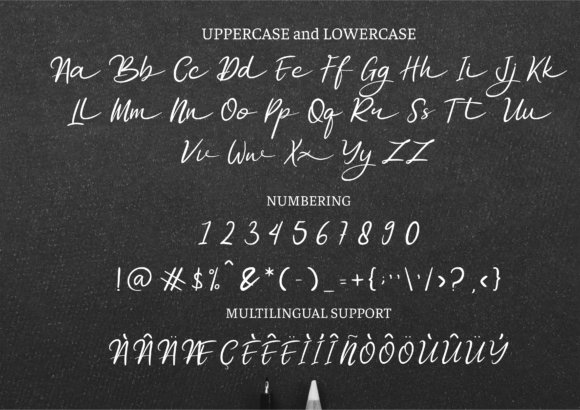 UPPERCASE and LOWERCASE
Aa Bb Cc Dd Ee Ff Gg Hh Ii Jj Kk
Ll Mm Nn Oo Pp Qq Rr Ss Tt Uu
Vv Ww Xx Yy ZZ
NUMBERING
1 2 3 4 5 6 7 8 9 0
!@#$%^&*(-)_=+{;'"\'/>?,<}
MULTILINGUAL SUPPORT
ÀÂÄÆÇÈÊËÌÍÎÑÒÔÖÙÛÜÝ